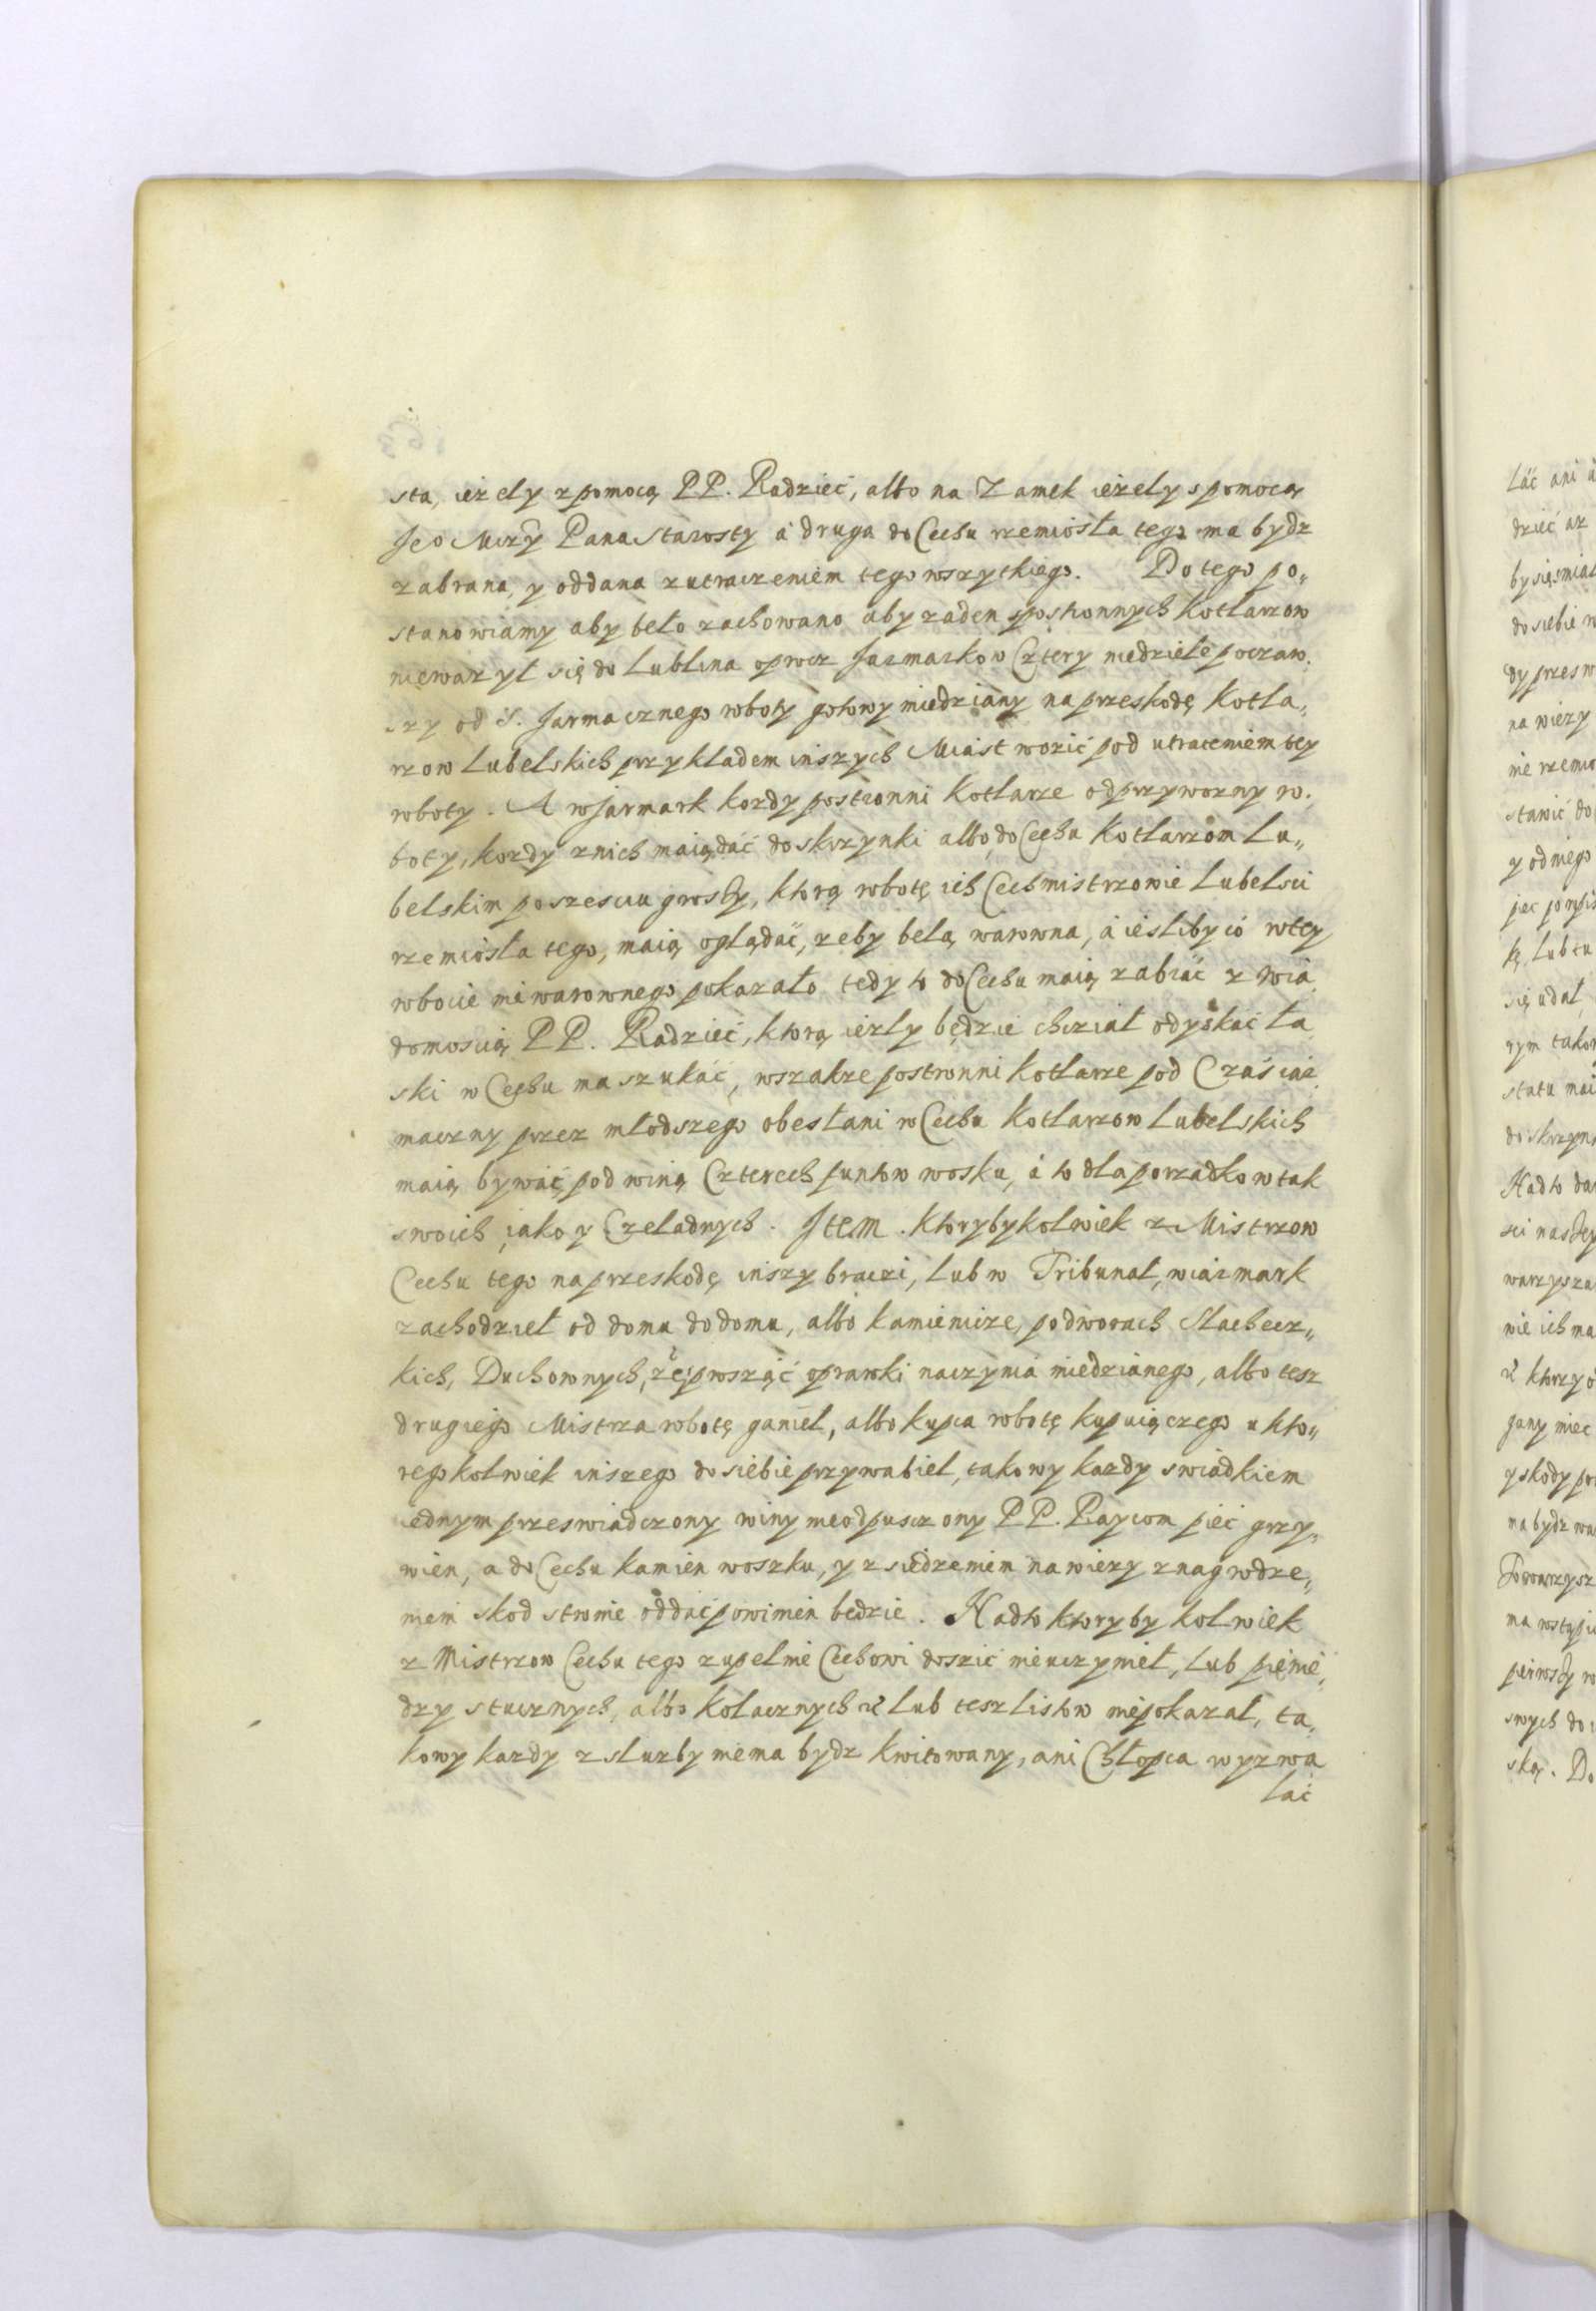 sta, ieżely z pomocą PP. Radzieć, albo na Zamek ieżely s pomocą
Jeo Mczy Pana Starosty á druga do Cechu rzemiosła tego ma bydz
zabrana, y oddana z utraczeniem tego wszytkiego. Do tego po„
stanowiamy aby beło zachowano aby zaden spostronnych Kotlarzow
nieważył się do Lublina oprocz Jarmarkow Cztery niedziele poczaw„
szy od S. Jarmacznego roboty gotowy miedziany na przeskodę Kotla„
rzow Lubelskich przykladem inszych Miast wozić pod utraceniem tey
roboty. A w Jarmark kozdy postronni Kotlarze od przywozny ro„
boty, kozdy znich maią dać do skrzynki albo do Cechu Kotlarzom Lu„
belskim po szesciu groszy, ktorą robotę ich Cechmistrzowie Lubelsci
rzemiosła tego, maią oglądać, zeby belą warowna, á iesliby co w tey
robocie niewarownego pokazało tedy to do Cechu maią zabrać z wia„
domoscią PP. Radzieć, ktorą iezly będzie chcział odyskać ła„
ski w Cechu ma szukać, wszakze postronni kotlarze pod Czas iar„
maczny przez mlodszego obesłani w Cechu Kotlarzow Lubelskich
maią bywać, pod winą Czterech funtow wosku, á to dla porzadkow tak
swoich iako y Czeladnych. Item. Ktorybykolwiek z Mistrzow
Cechu tego na przeskodę inszy braczi, lub w Tribunał, w iarmark
zachodzieł od domu do domu, albo kamienicze, po dworach Slachecz„
kich, Duchownych, oprawki naczynia miedzianego, albo tesz
drugiego Mistrza robotę ganieł, albo kupca robotę kupuiączego u kto„
regokolwiek inszego do siebie przywabieł, takowy kazdy swiadkiem
iednym przeswiadczony winy nieodpusczony PP. Raycom pieć grzy„
wien, a do Cechu kamien woszku, y z siedzeniem na wiezy z nagrodze„
niem skod stronie oddać powinien bedzie. Nadto ktoryby kolwiek
z Mistrzow Cechu tego zupelnie Cechowi doszić nieuczynieł, lub pienię„
dzy stucznych, albo kolacznych lub tesz listow niepokazał, ta„
kowy kazdy z sluzby niema bydz kwitowany, ani Chłopca wyzwa
lać